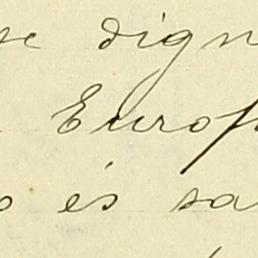 se dign
Europ
és sa